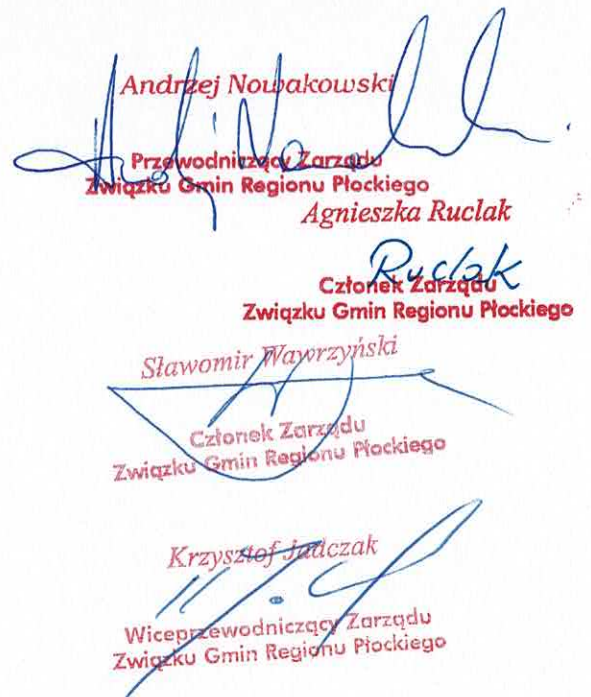 Andrzej Nowakowski
Przewodniczący Zarządu
Związku Gmin Regionu Płockiego
Agnieszka Ruclak
Ruclak
Członek Zarządu
Związku Gmin Regionu Płockiego
Sławomir Wawrzyński
Członek Zarządu
Związku Gmin Regionu Płockiego
Krzysztof Jadczak
Wiceprzewodniczący Zarządu
Związku Gmin Regionu Płockiego